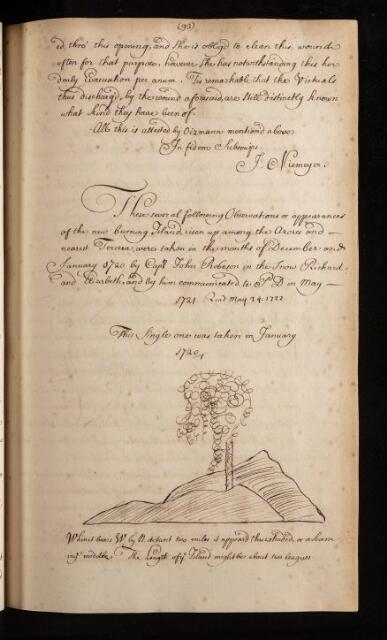 (93)
ed thro' this opening, and she is oblig'd to clean this wound
often for that purpose, however she has notwithstanding this her
daily Evacuation per anum. Tis remarkable that the Victuals
thus discharg'd by the wound aforesaid, are still distinctly known
what kind they have been of.
All this is attested by Dizmann mention'd above
In fidem Subscrips.
J. Niemeyer.
These several following Observations or appearances
of the new burning Island, risen up among the Azores and
nearest Tercera, were taken in the months of December and
January 1720 by Capt. John Robeson in the Snow Richard
and Elizabeth, and by him communicated to in May
1721. Read May 24. 1722
This Single one was taken in January
1720,
When it bears W by N. distant two miles it appear'd thus shaded, or a
ing middle. The length of ys Island might be about two leagues.